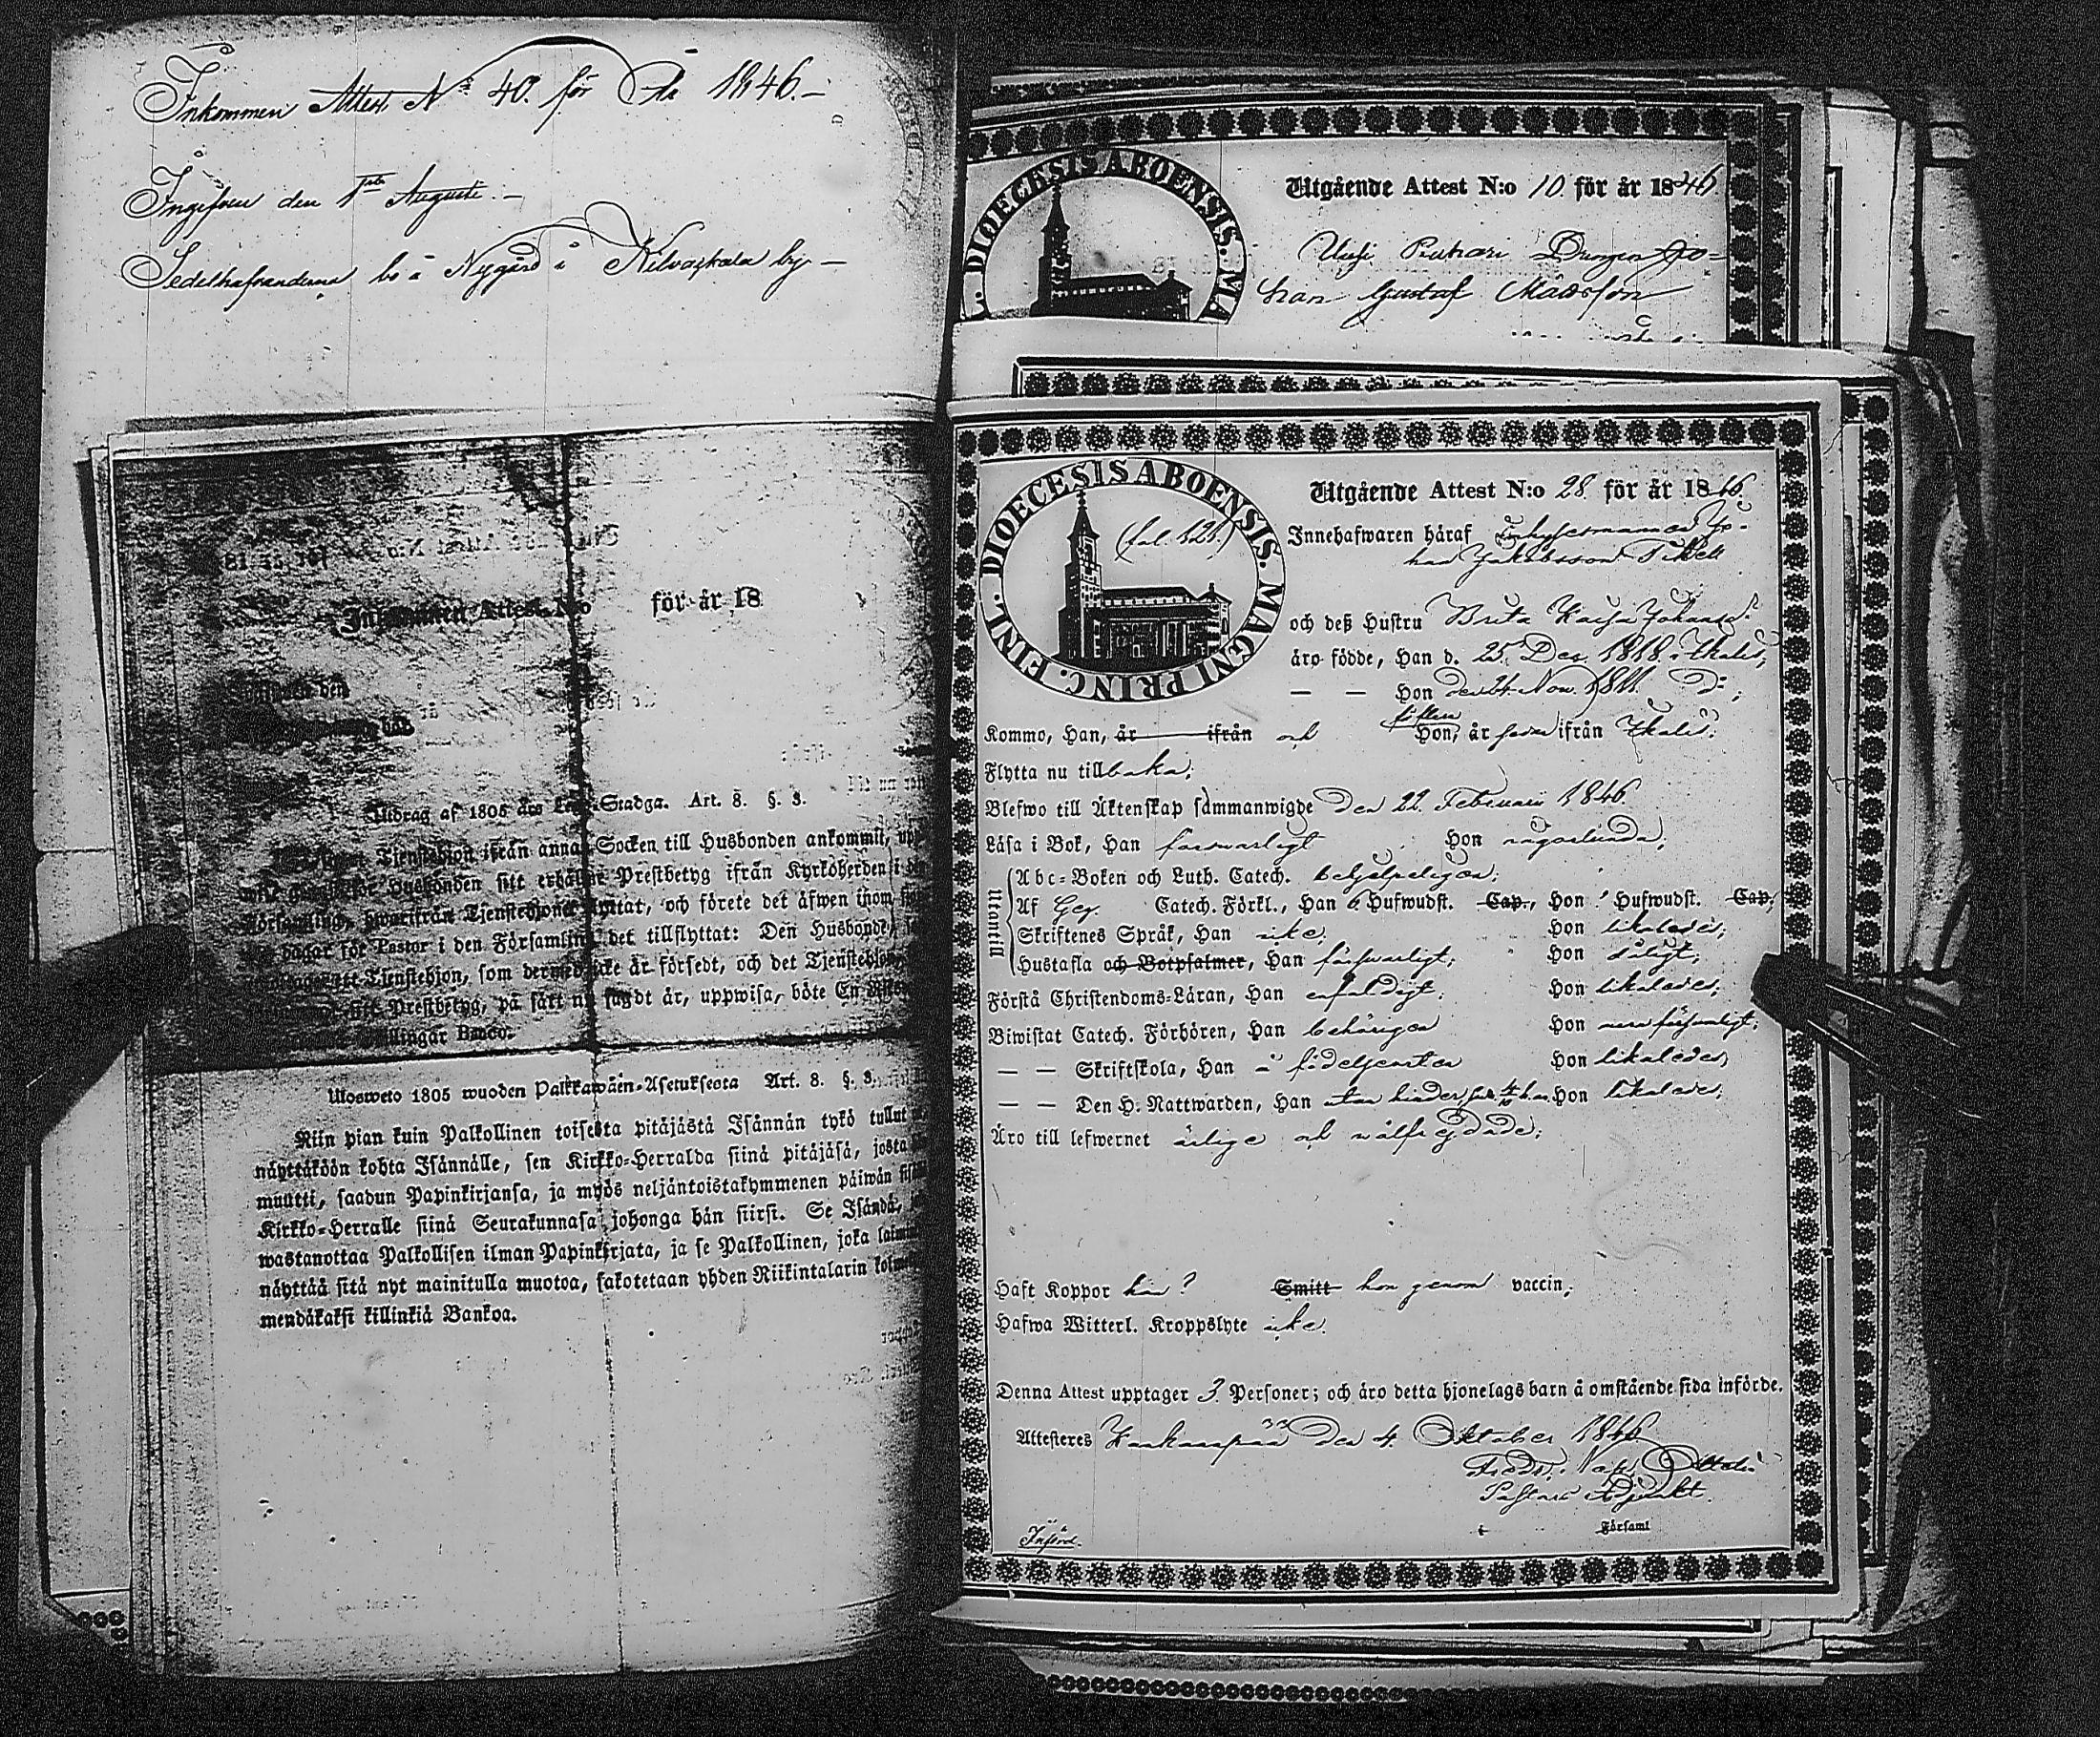 Inkommen Attest N: 40. för År 1846.–
Ingifven den 1sta Augusti.–
Sedelhafvanderna bo å Nygård i Kilvaxkala by –
Inkommen Attest N:o för år 18
Utdrag af 1805 års Lego-Stadga. Art. 8. §. 3.
Tjenstehjon ifrån annan Socken till Husbonden ankommit,
Husbonden sitt erhållne Prestbetyg ifrån Kyrkoherden i
Församling, hwarifrån Tjenstehjonet flyttat, och förete det äfwen inom
dagar för Pastor i den Församling det tillflyttat: Den Husbonde
Tjenstehjon, som dermed icke är försedt, och det Tjenstehjon,
sitt Prestbetyg, på sätt nu sagdt är, uppwisa, böte En
Skillingar Banco.
Ulosweto 1805 wuoden Palkkawäen-Asetuksesta Art. 8. §. 3.
Niin pian kuin Palkollinen toisesta pitäjästä Isännän tykö tullut
näyttäköön kohta Isännälle, sen Kirkko-Herralda siinä pitäjäsä, josta
muutti, saadun Papinkirjansa, ja myös neljäntoistakymmenen päiwän
Kirkko-Herralle siinä Seurakunnasa johonga hän siirsi. Se Isändä,
wastanottaa Palkollisen ilman Papinkirjata, ja se Palkollinen, joka
näyttää sitä nyt mainitulla muotoa, sakotetaan yhden Riikintalarin
mendäkaksi killinkiä Bankoa.
DIOECESIS ABOENSIS. M.
Utgående Attest N:o 10. för år 1846
Uusi Ruhari Drengen Jo-
han Gustaf Mattsson
DIOECESIS ABOENSIS. MAGNI PRINC. FINL.
(fol. 121.)
Utgående Attest N:o 28. för år 1846.
Innehafwaren häraf Inhysesmannen Jo-
han Jakobsson Tikell
och deß Hustru Brita Kaisa Johansd:
äro födde, Han d. 25. Dec. 1818. i Ikalis,
— — Hon den 24. Nov. 1811. d:;
Kommo, Han, år ifrån och Hon, år ifrån Ikalis.
Flytta nu tillbaka;
Blefwo till Äktenskap sammanwigde den 22. Februarii 1846.
Läsa i Bok, Han försvarligt Hon någorlunda;
Utantill
Abc-Boken och Luth. Catech. behjelpeligen;
Af Gez. Catech. Förkl., Han 6. Hufwudst. Cap., Hon Hufwudst. Cap.
Skriftenes Språk, Han icke; Hon likaledes;
Hustafla och Botpsalmer, Han försvarligt; Hon dåligt;
Förstå Christendoms-Läran, Han enfaldigt; Hon likaledes;
Biwistat Catech. Förhören, Han behörigen Hon
— — Skriftskola, Han å födelseorten Hon likaledes,
— — Den H. Nattwarden, Han utan hinder Hon likaledes;
Äro till lefwernet ärlige och wälfrejdade;
Haft Koppor han? Smitt hon genom vaccin,
Hafwa Witterl. Kroppslyte icke.
Denna Attest upptager 3. Personer; och äro detta hjonelags barn å omstående sida införde.
Attesteres Kankaanpää den 4. Oktober 1846.
Pastors Adjunkt.
i Församl
Införd.